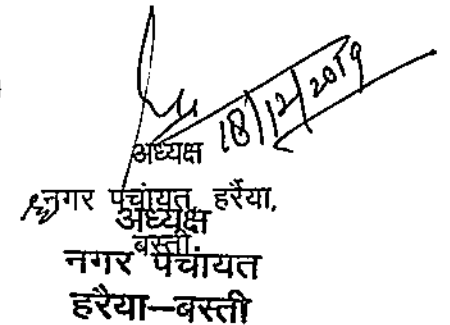 18/12/2019
अध्यक्ष
नगर पंचायत, हर्रैया,
बस्ती.
अध्यक्ष
नगर पंचायत
हरैया–बस्ती